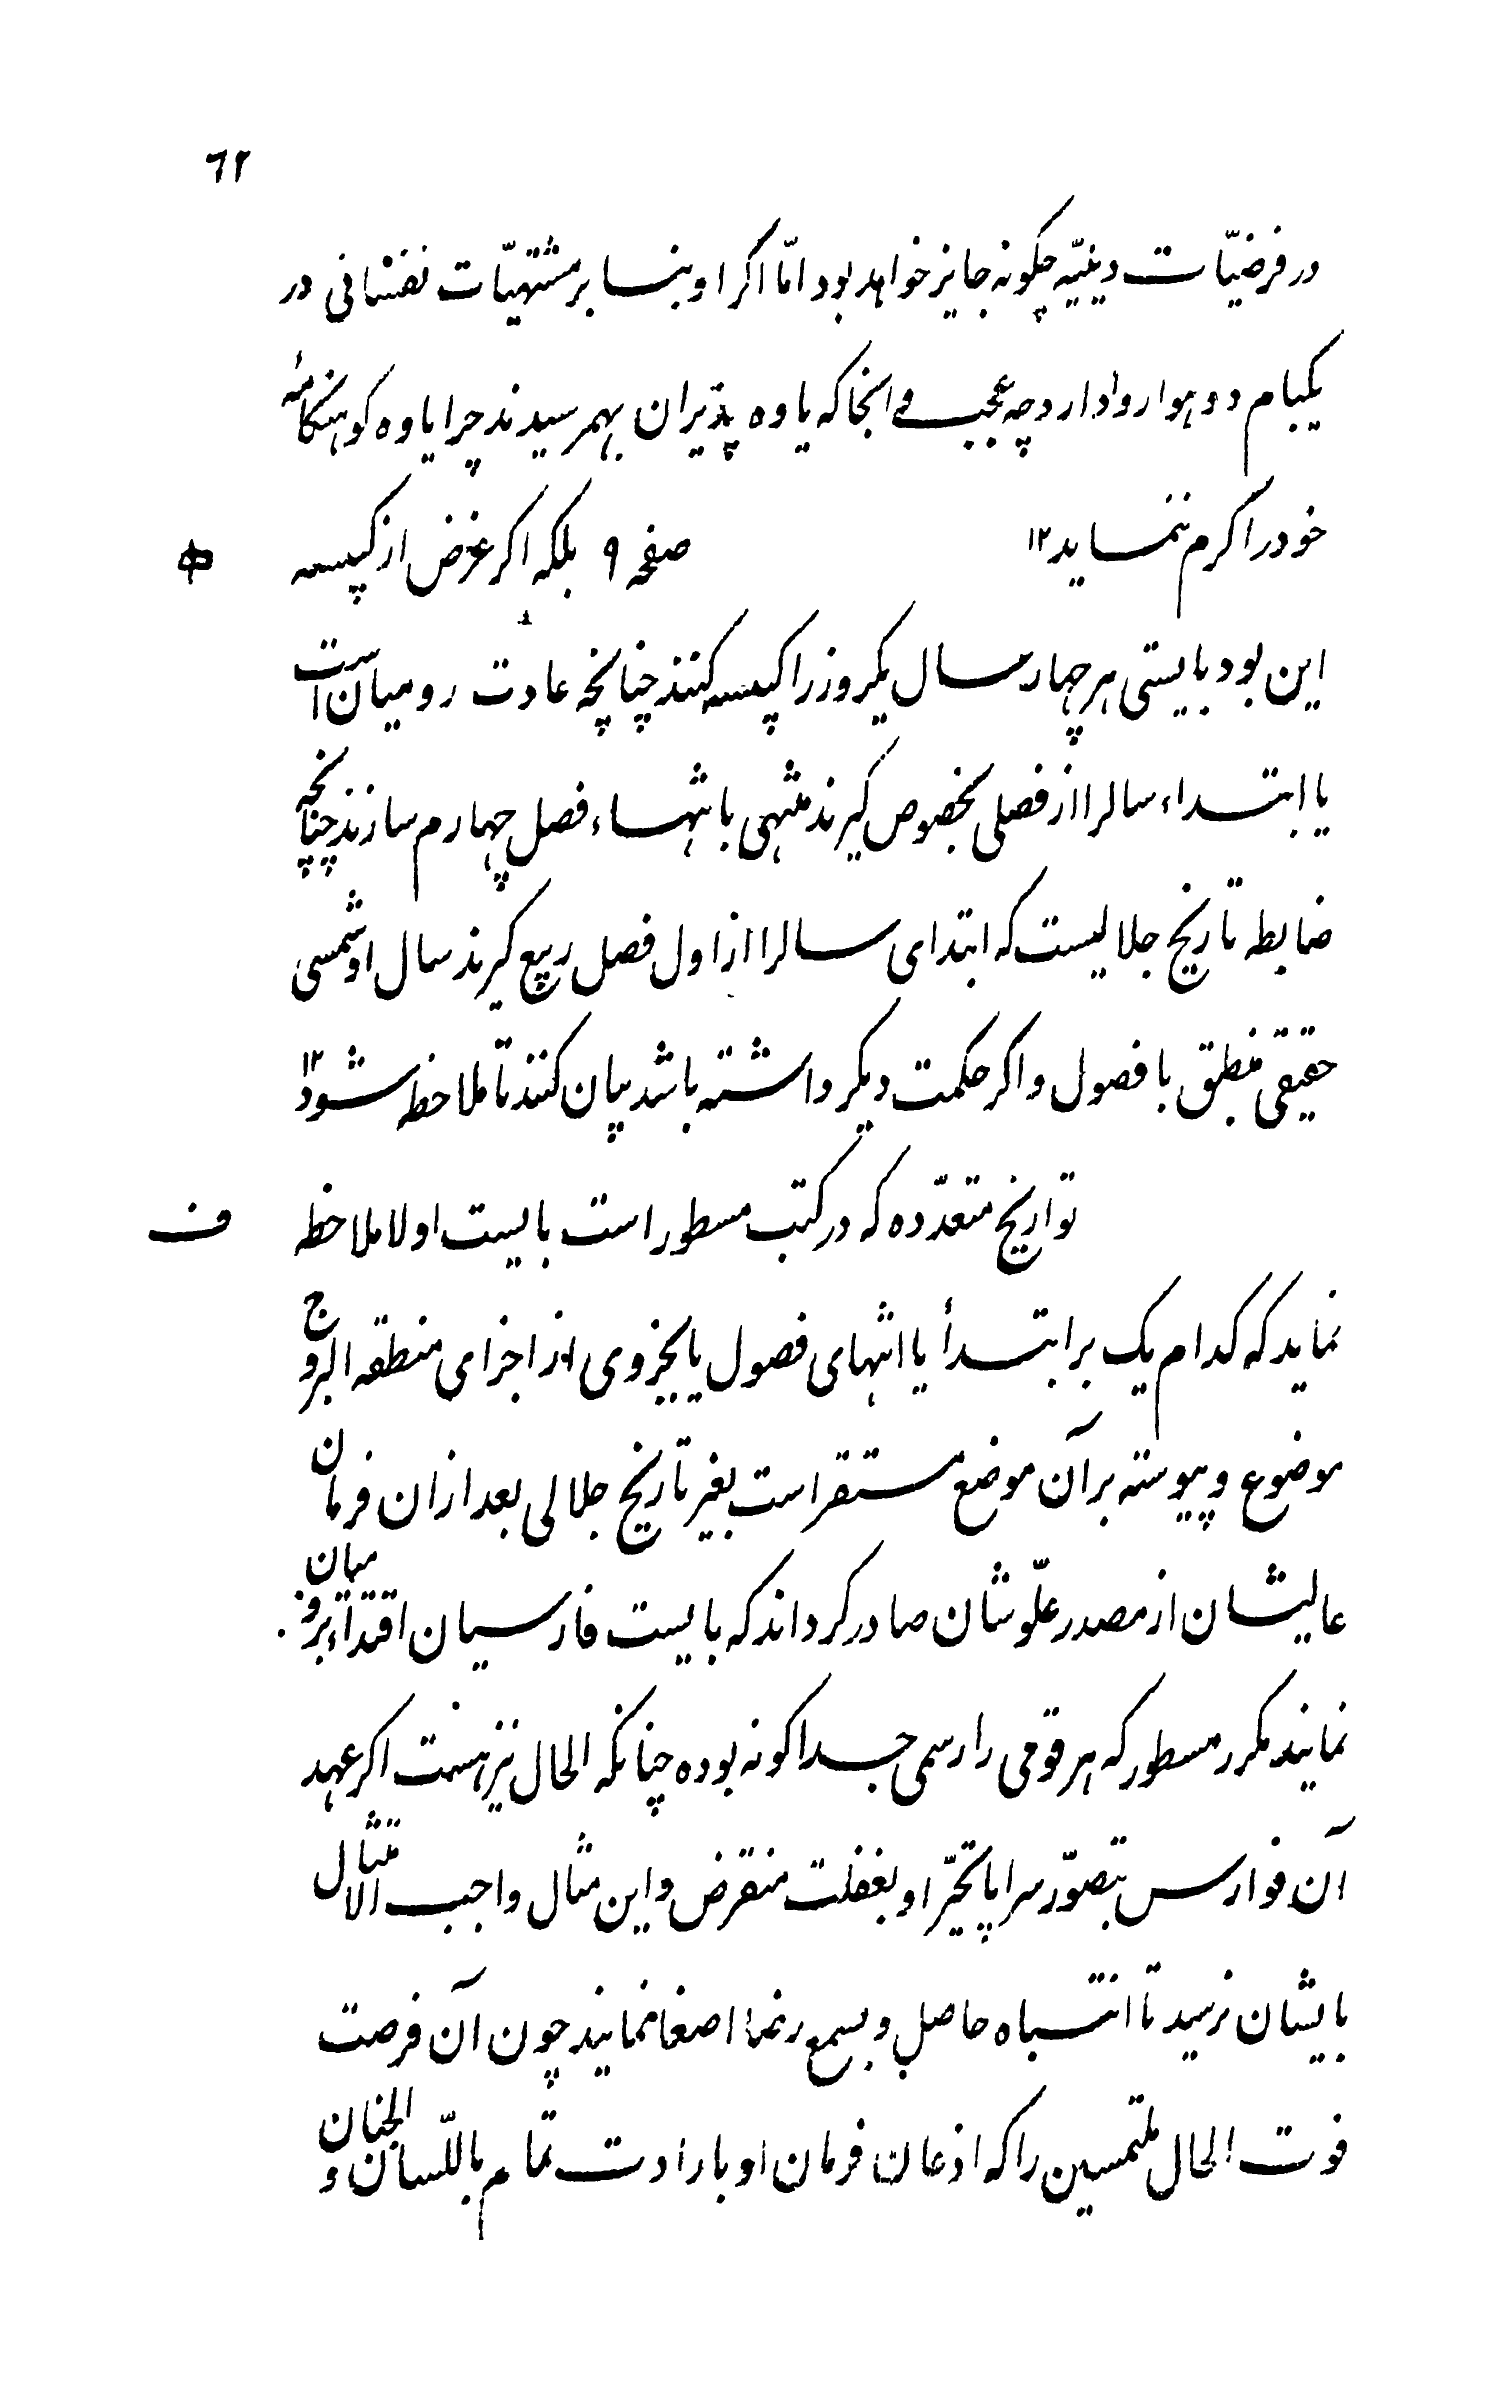 ٦٢
در فرضیّات دینیّه چکونه جایز خواهد بود امّا اکر او بنا بر مشتهیّات نفسانی در
یکبام دو هوا روادارد چه عجب فی انجا که یاوه پذیران بهمرسیدند چرا یاوه کو هنکامهٔ
خود را کرم ننماید ۱۲ صفحه ۹ بلکه اکر غرض از کبیسه
این بود بایستی هر چهار سال یکروز را کبیسه کنند چنانچه عادت رومیان است
یا ابتداء سالرا از فصلی بخصوص کیرند منتهی بانتهاء فصل چهارم سازند چنانچه
ضابطه تاریخ جلالیست که ابتدای سالرا از اول فصل ربیع کیرند سال او شمسی
حقیقی منطبق با فصول و اکر حکمت دیکر داشته باشد بیان کنند تا ملاحظه شود ۱۲
ف تواریخ متعدّده که در کتب مسطور است بایست اولا ملاحظه
نماید که کدام یک بر ابتدأ یا انتهای فصول یا بجزوی از اجزای منطقه البروج
موضوع و پیوسته بر آن موضع مستقر است بغیر تاریخ جلالی بعد از ان فرمان
عالیشان از مصدر علّو شان صادر کرداند که بایست فارسیان اقتداء برومیان
نمایند مکرر مسطور که هر قومی را رسمی جداکونه بوده چنانکه الحال نیز هست اکر عهد
آن فوارس بتصوّر سراپا تحیّر او بغفلت منقرض و این مثال واجب الامتثال
بایشان نرسید تا انتباه حاصل و بسمع رضا اصغا نمایند چون آن فرصت
فوت الحال ملتمسین را که اذعان فرمان او بارادت تمام باللّسان و الجنان